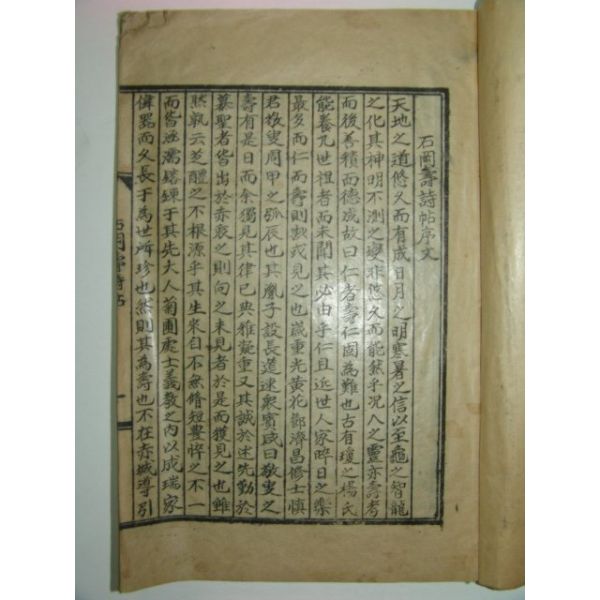 石岡壽詩帖序文
天地之道悠久而有成日月之明寒暑之信以至龜之智龍
之化其神明不測之變非悠久而能然乎況人之靈亦壽考
而後善積而德成故曰仁者壽仁固為難也古有瓊之楊氏
能養九世祖者而未聞其必由乎仁且近世人家晬日之樂
最多而仁而壽則或見之也歲重光黃花鄭濟昌修士慎
君敬叟周甲之弧辰也其胤子設長筵速衆賓咸曰敬叟之
壽有是日而余獨見其律己典雅凝重又其誠於述先勤於
慕聖者皆出於赤衷之則向之未見者於是而獲見之也雖
然孰云芝醴之不根源乎其生來自不無脩短豊悴之不一
而皆涵濡鎔鍊于其先大人菊圃處士義教之內以成瑞家
偉器而久長于為世所珍也然則其為壽也不在赤城導引